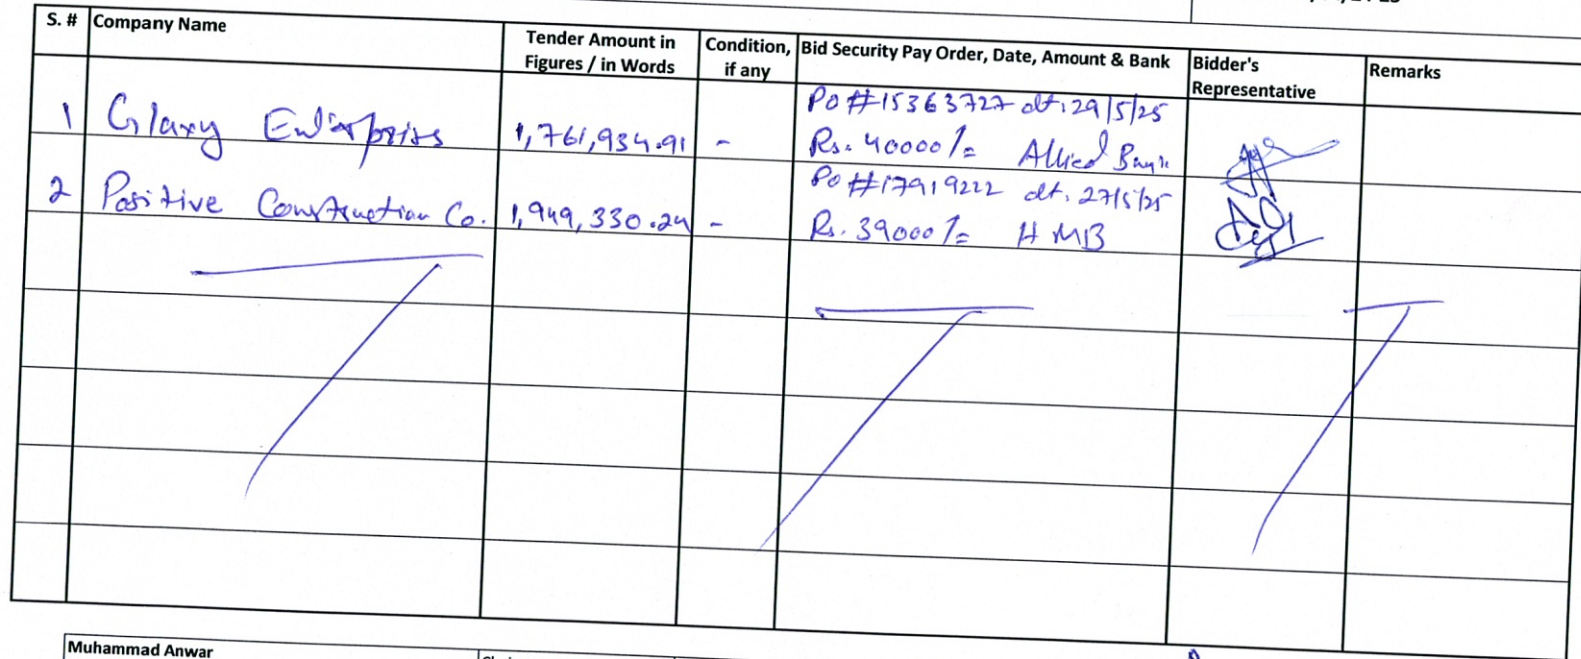 S. # Company Name Tender Amount in Figures / in Words Condition, if any Bid Security Pay Order, Date, Amount & Bank Bidder's Representative Remarks
1 Glaxy Enterprises 1,761,934.91 - PO #15363727 dt: 29/5/25
Rs. 40000/= Allied Bank
2 Positive Construction Co. 1,949,330.24 - PO #17919222 dt. 27/5/25
Rs. 39000/= HMB
Muhammad Anwar